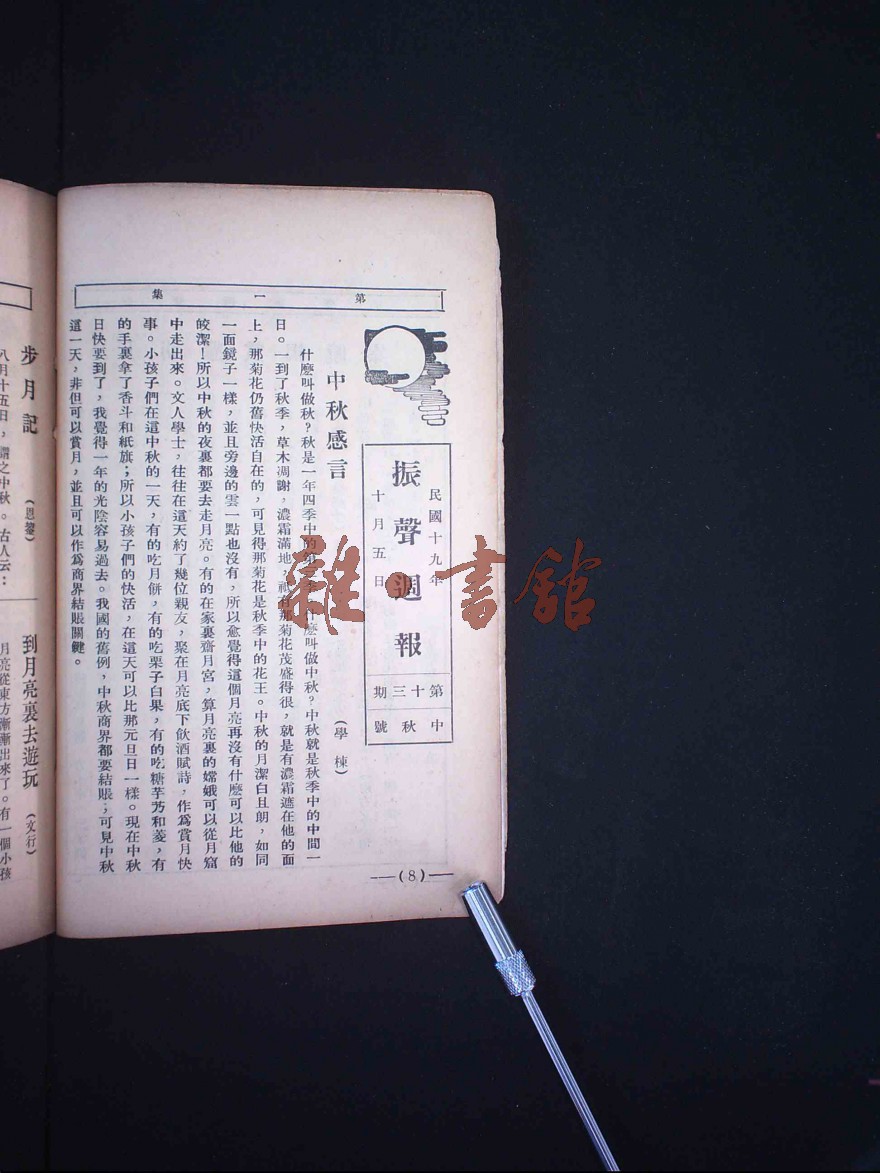 第一集
民國十九年
十月五日
振聲週報
第十三期
中秋號
中秋感言
（學棟）
什麼叫做秋？秋是一年四季中的第 什麼叫做中秋？中秋就是秋季中的中間一
日。一到了秋季，草木凋謝，濃霜滿地，祇有那菊花茂盛得很，就是有濃霜遮在他的面
上，那菊花仍舊快活自在的，可見得那菊花是秋季中的花王。中秋的月潔白且朗，如同
一面鏡子一樣，並且旁邊的雲一點也沒有，所以愈覺得這個月亮再沒有什麼可以比他的
皎潔！所以中秋的夜裏都要去走月亮。有的在家裏齋月宮，算月亮裏的嫦娥可以從月窟
中走出來。文人學士，往往在這天約了幾位親友，聚在月亮底下飲酒賦詩，作爲賞月快
事。小孩子們在這中秋的一天，有的吃月餅，有的吃栗子白果，有的吃糖芋艿和菱，有
的手裏拿了香斗和紙旗；所以小孩子們的快活，在這天可以比那元旦日一樣。現在中秋
日快要到了，我覺得一年的光陰容易過去。我國的舊例，中秋商界都要結賬，可見中秋
這一天，非但可以賞月，並且可以作爲商界結賬關鍵。
（8）
步月記
（恩鏊）
八月十五日，謂之中秋。古人云：
到月亮裏去遊玩
（文行）
月亮從東方漸漸出來了。有一個小孩
雜·書館